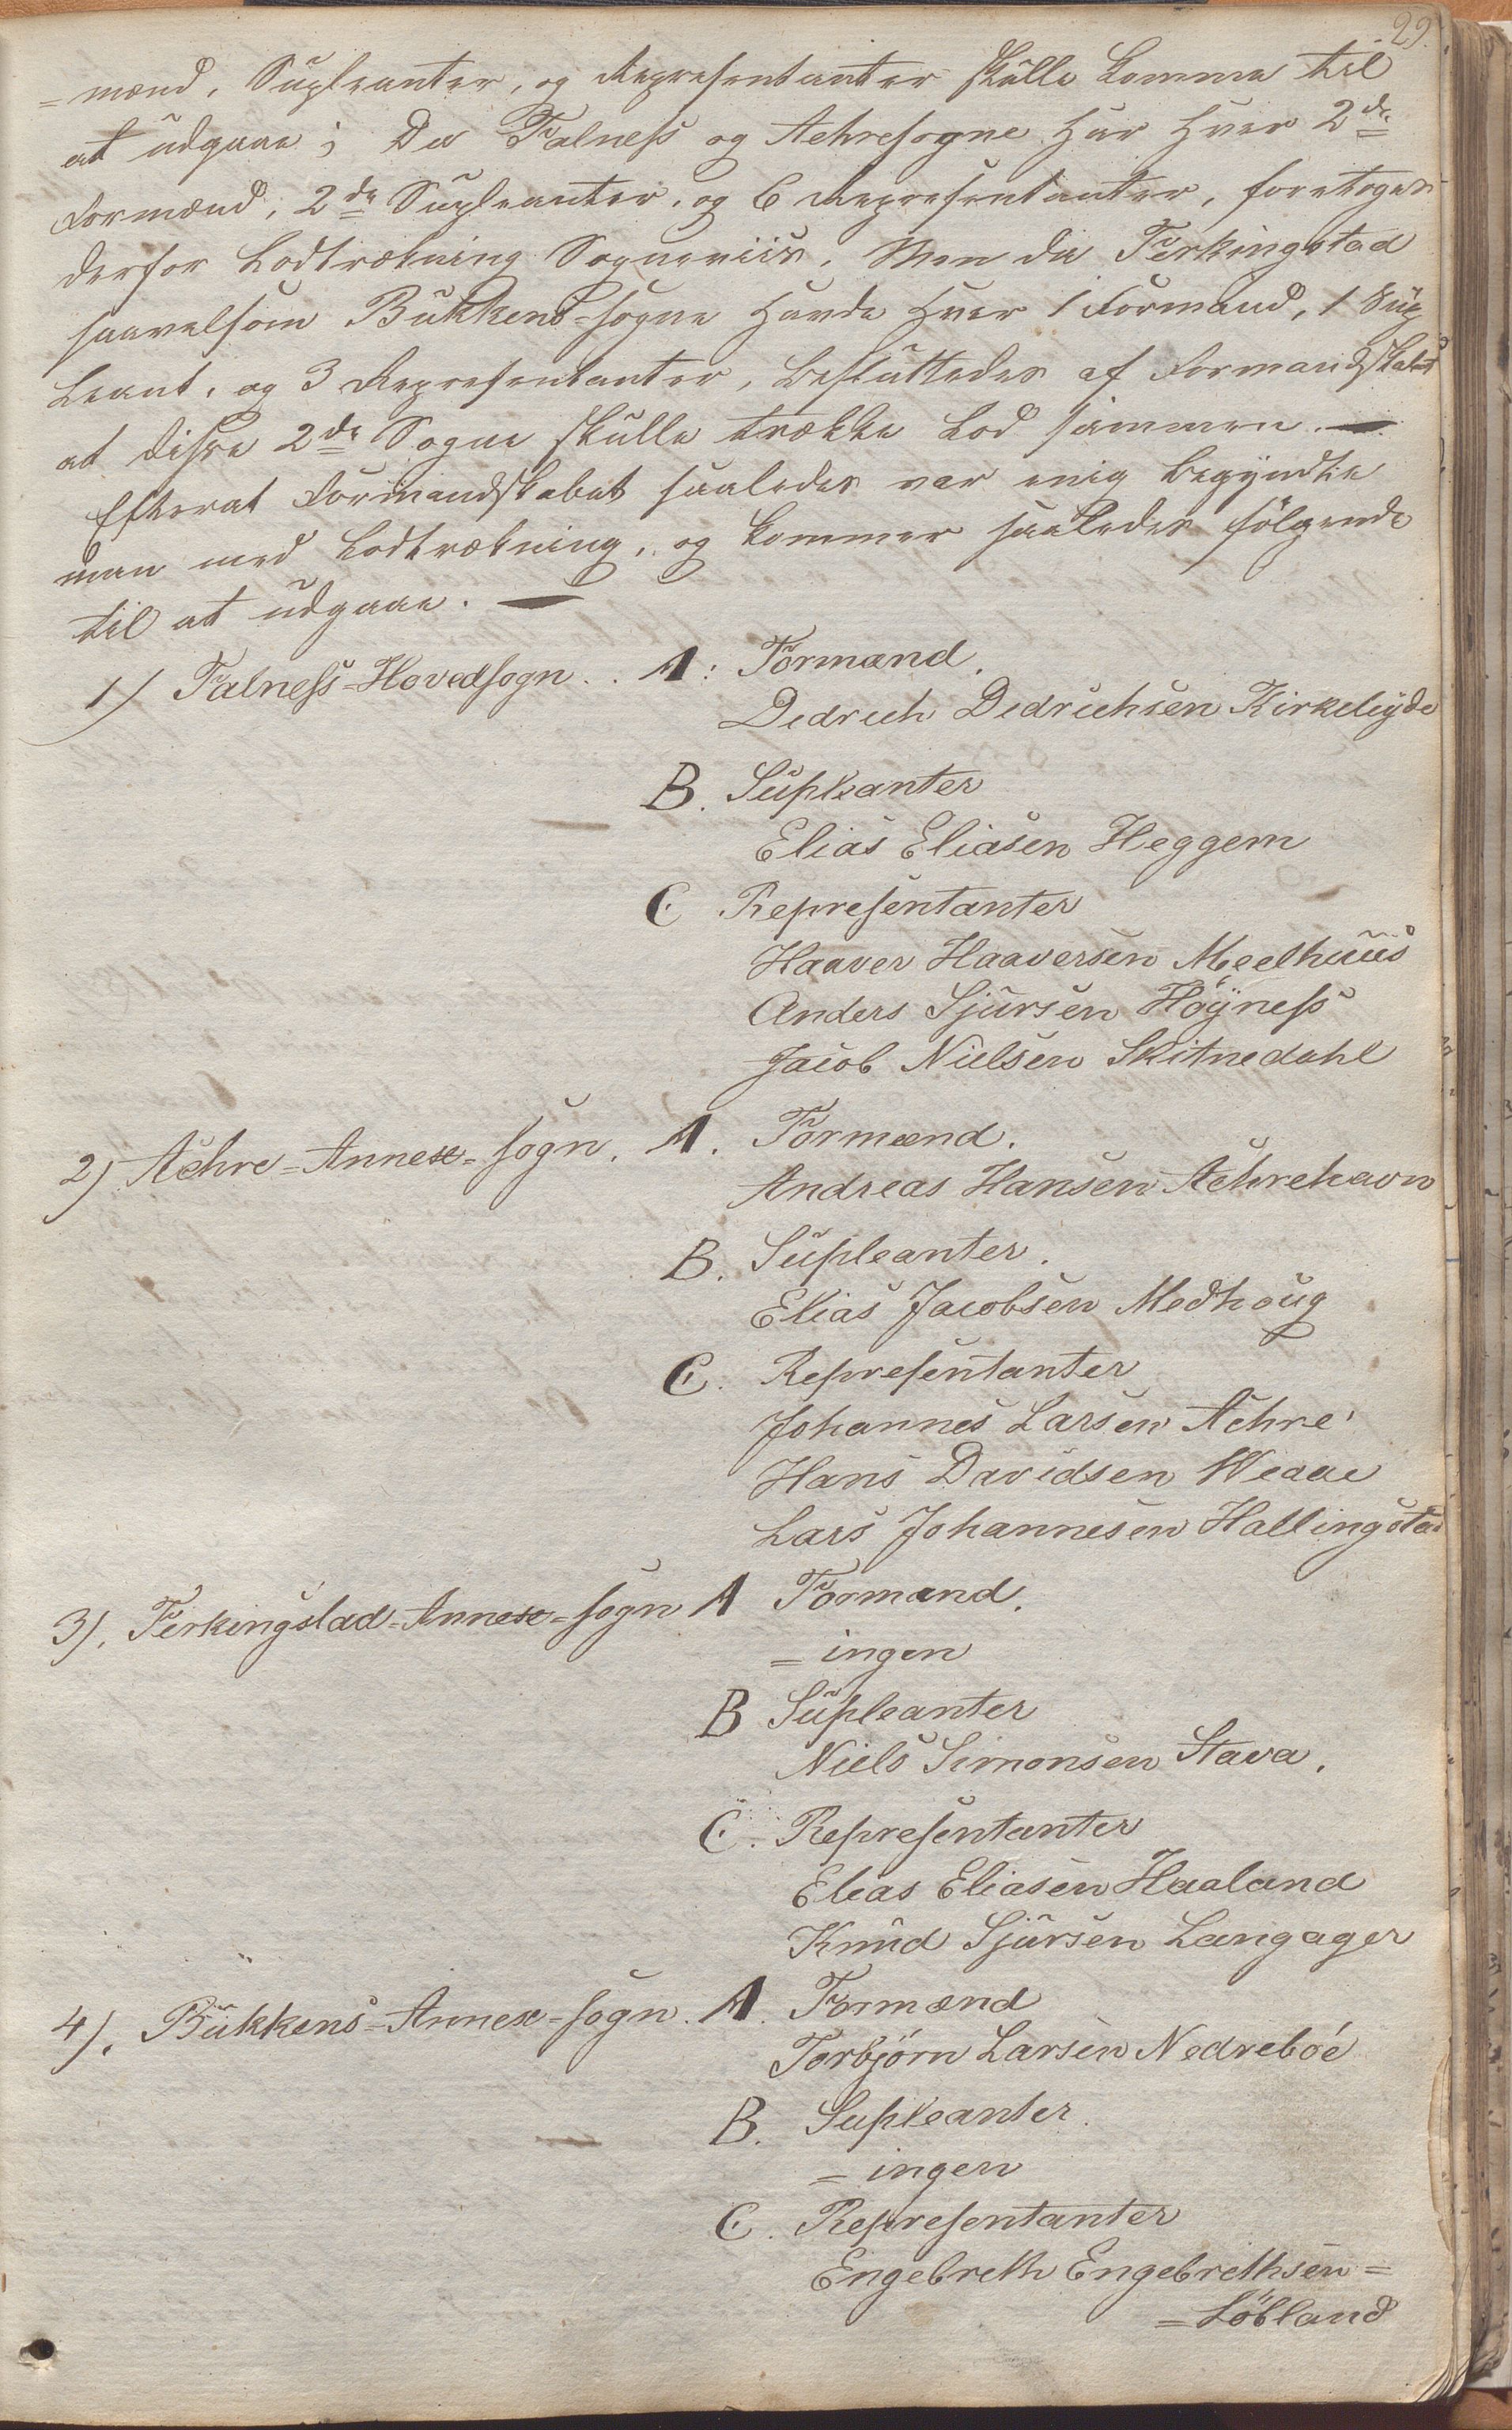 29.
=mænd, Supleanter, og Representanter skulle komme til
at udgaae; Da Falness og Aehresogne har hver 2de
Formænd, 2de Supleanter, og 6 Representanter, foretoges
derfor Lodtrækning Sogneviis. Men da Ferkingstad
saavelsom Bukkens=sogne havde hver 1 Formand, 1 Sup
leant, og 3 Representanter, besluttedes af Formandskabet
at disse 2de Sogne skulle trække Lod sammen. —
Efterat Formandskabet saaledes var enig begyndte
man med Lodtrækning, og kommer saaledes følgende
til at udgaae. —
1) Falness=Hovedsogn. . A: Formænd.
Dedrich Dedrichsen Kirkeleyde
B. Supleanter
Elias Eliasen Heggem
C. Representanter
Haaver Haaversen Meelhuus
Anders Sjursen Höyness
Jacob Nielsen Skitnedahl
2) Aehre=Annex=sogn. A. Formænd.
Andreas Hansen Aehrehavn
B. Supleanter.
Elias Jacobsen Medhoug
C. Representanter
Johannes Larsen Aehre
Hans Davidsen Weaae
Lars Johannesen Hallingstad
3). Ferkingstad=Annex=sogn A Formænd.
= ingen
B Supleanter
Niels Simonsen Stava.
C. Representanter
Elias Eliasen Haaland
Knud Sjursen Langager
4). Bukkens=Annex=sogn. A. Formænd
Torbjörn Larsen Nedreböe
B. Supleanter.
= ingen
C. Representanter
Engebreth Engebrethsen=
=Löbland